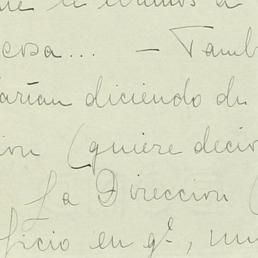 a
cosa... — Tamb
arían diciendo du
ion (quiere decir
La Direccion (
ficio en gl,